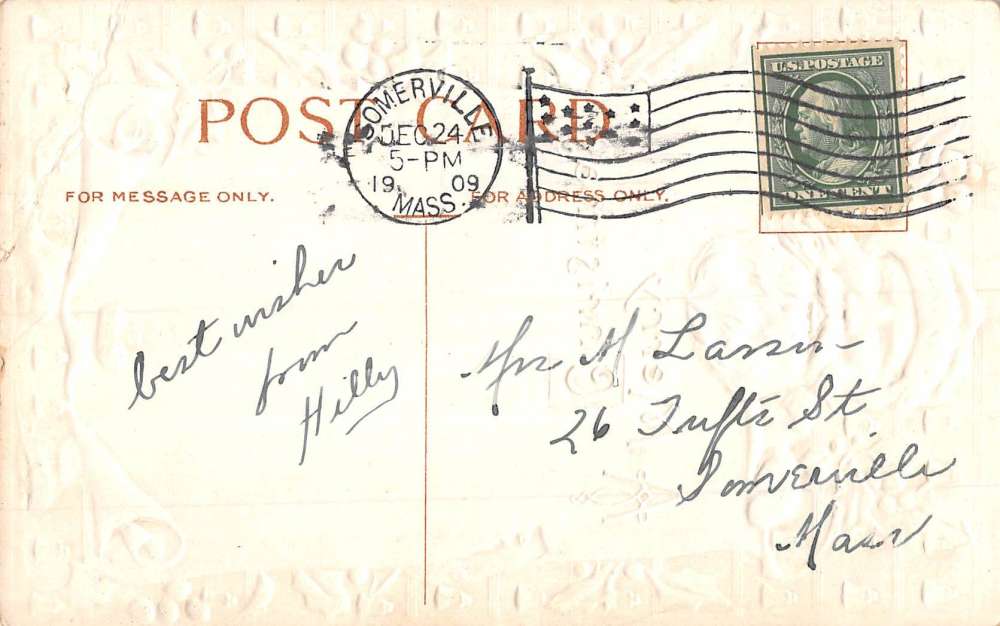 POST CARD
SOMERVILLE
DEC 24
5-PM
1909
MASS.
U.S.POSTAGE
ONE CENT 1
FOR MESSAGE ONLY.
FOR ADDRESS ONLY.
best wishes
from
Hilly
M Larsen
26 Tufts St
Somerville
Mass